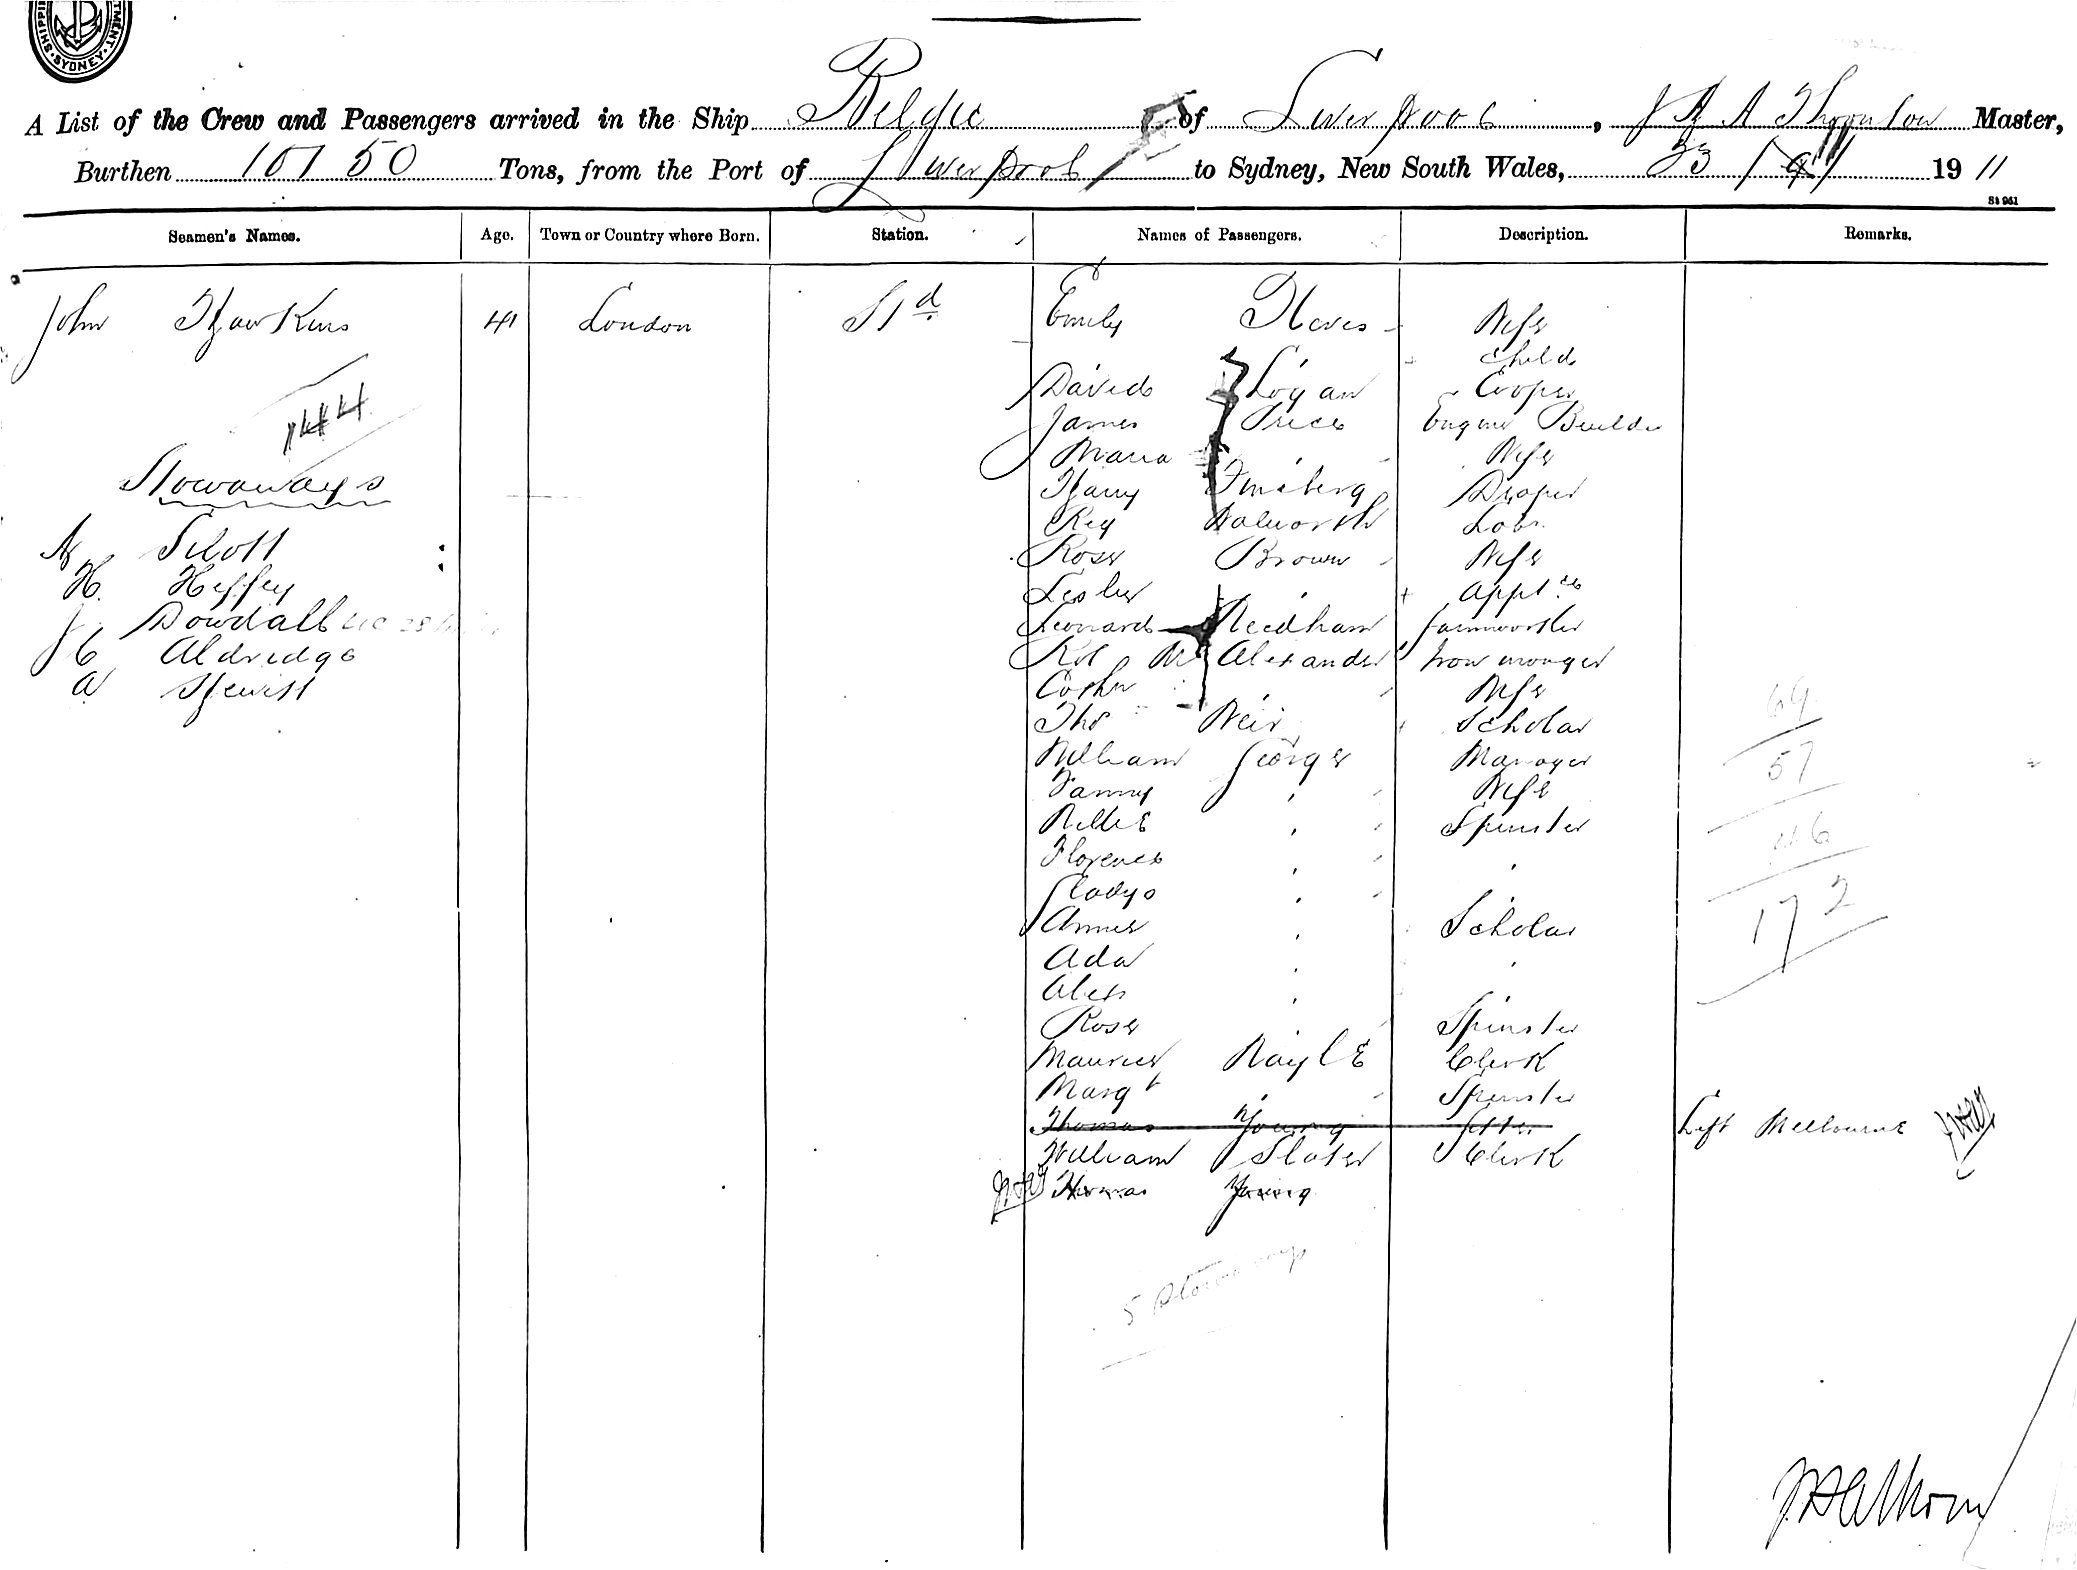 SHIPPI TMENT. SYDNEY.
A List of the Crew and Passengers arrived in the Ship Belgic of Liverpool, J H A Thornton Master,
Burthen 10150 Tons, from the Port of Liverpool to Sydney, New South Wales, 23 19 11
St 961
Seamen's Names. Age. Town or Country where Born. Station. Names of Passengers. Description. Remarks.
John Hawkins 41 London Std Emily Wife
Child
David Logan Cooper
James Price Engine Builder
Maria " Wife
144
Stowaways
Harry Fineberg Draper
Reg Walworth Labr
N Scott Rose Brown Wife
H. Heffey Leslie " Appt ce
J Dowdall Leonard Needham farmworker
C Aldridge Rob M Alexander Iron monger
A Hewitt Wife
Thos Weir Scholar
69
William George Manager
57
Fanny " Wife
Nellie " Spinster
46
Florence " "
Gladys " "
172
Annie " Scholar
Ada " "
Alex " "
Rose " Spinster
Maurice Nayle Clerk
Margt " Spinster
Thomas Young Left Melbourne
William Slater Clerk
Thomas Young
5 Stowaways